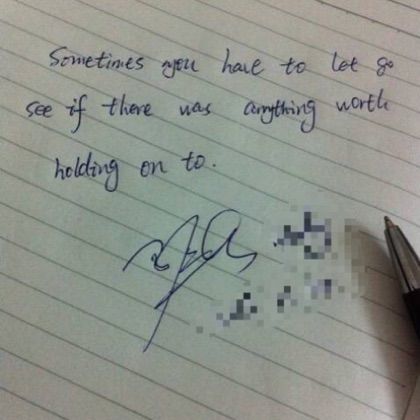 Sometimes you have to let go
see if there was anything worth
holding on to.